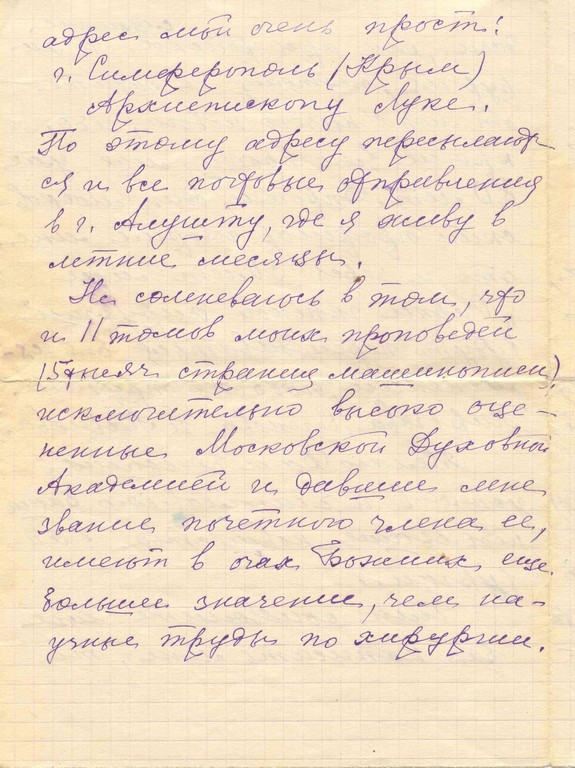 адрес мой очень прост:
г. Симферополь (Крым)
Архиепископу Луке.
По этому адресу пересылают-
ся и все почтовые отправления
в г. Алушту, где я живу в
летние месяцы.
Не сомневаюсь в том, что
и 11 томов моих проповедей
(5 тысяч страниц машинописи)
исключительно высоко оце-
ненные Московской Духовной
Академией и давшие мне
звание почетного члена ее,
имеют в очах Божиих еще
большее значение, чем на-
учные труды по хирургии.